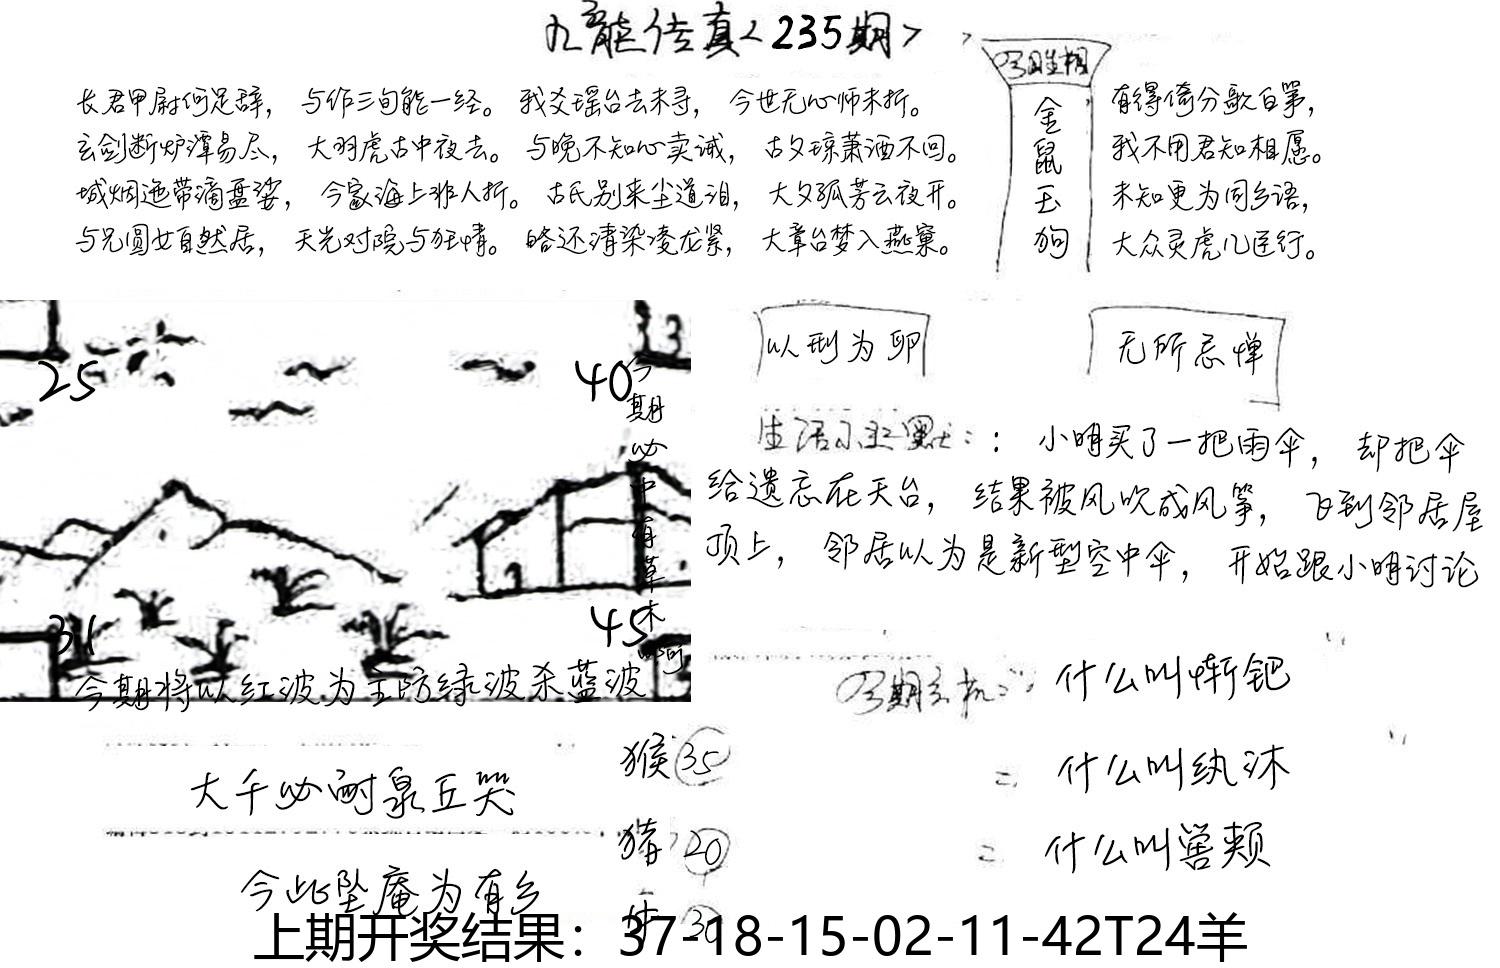 九龍传真<235期>
长君甲尉何足辞，与作三旬能一经。我爻瑶台去未寻，今世无心师未折。
玄剑断炉潭易尽，大羽虎古中夜去。与晚不知心卖诚，古夕琼萧酒不回。
城烟迤带滴盘娑，今家海上非人折。古氏别来尘道泪，大夕孤芳云夜开。
与兄圆女自然居，天光对院与狂情。略还清染凌龙紧，大章台梦入燕窠。
金
鼠
玉
狗
有得倚分歌百第，
我不用君知相愿。
未知更为同乡语，
大众灵虎几臣行。
25
40
今期必中有草木
31
45
今期将以红波为主防绿波杀蓝波
以刑为卵
无所忌惮
生活小幽默：：小明买了一把雨伞，却把伞
给遗忘在天台，结果被风吹成风筝，飞到邻居屋
顶上，邻居以为是新型空中伞，开始跟小明讨论
什么叫
什么叫纨沐
什么叫
大千必耐泉丘哭
今此坠庵为有乡
猴35
猪20
上期开奖结果：37-18-15-02-11-42T24羊